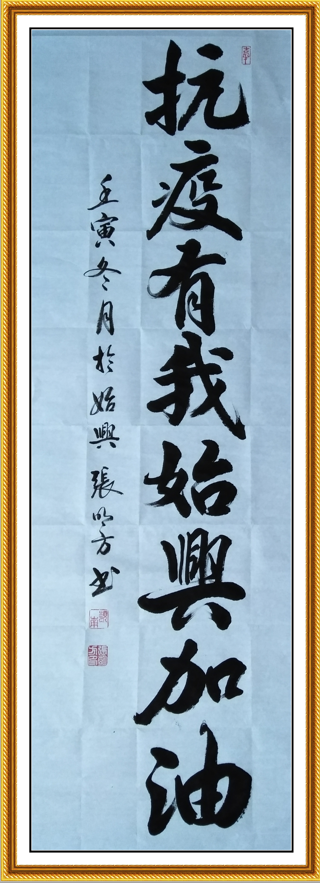 抗疫有我始興加油
壬寅冬月於始興張明方书